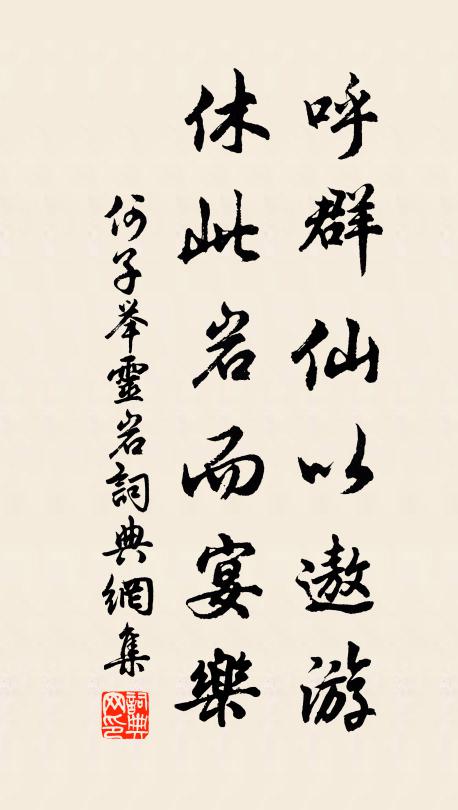 呼群仙以遨游
休此岩而宴樂
何子举靈岩詞典網集
詞典网印